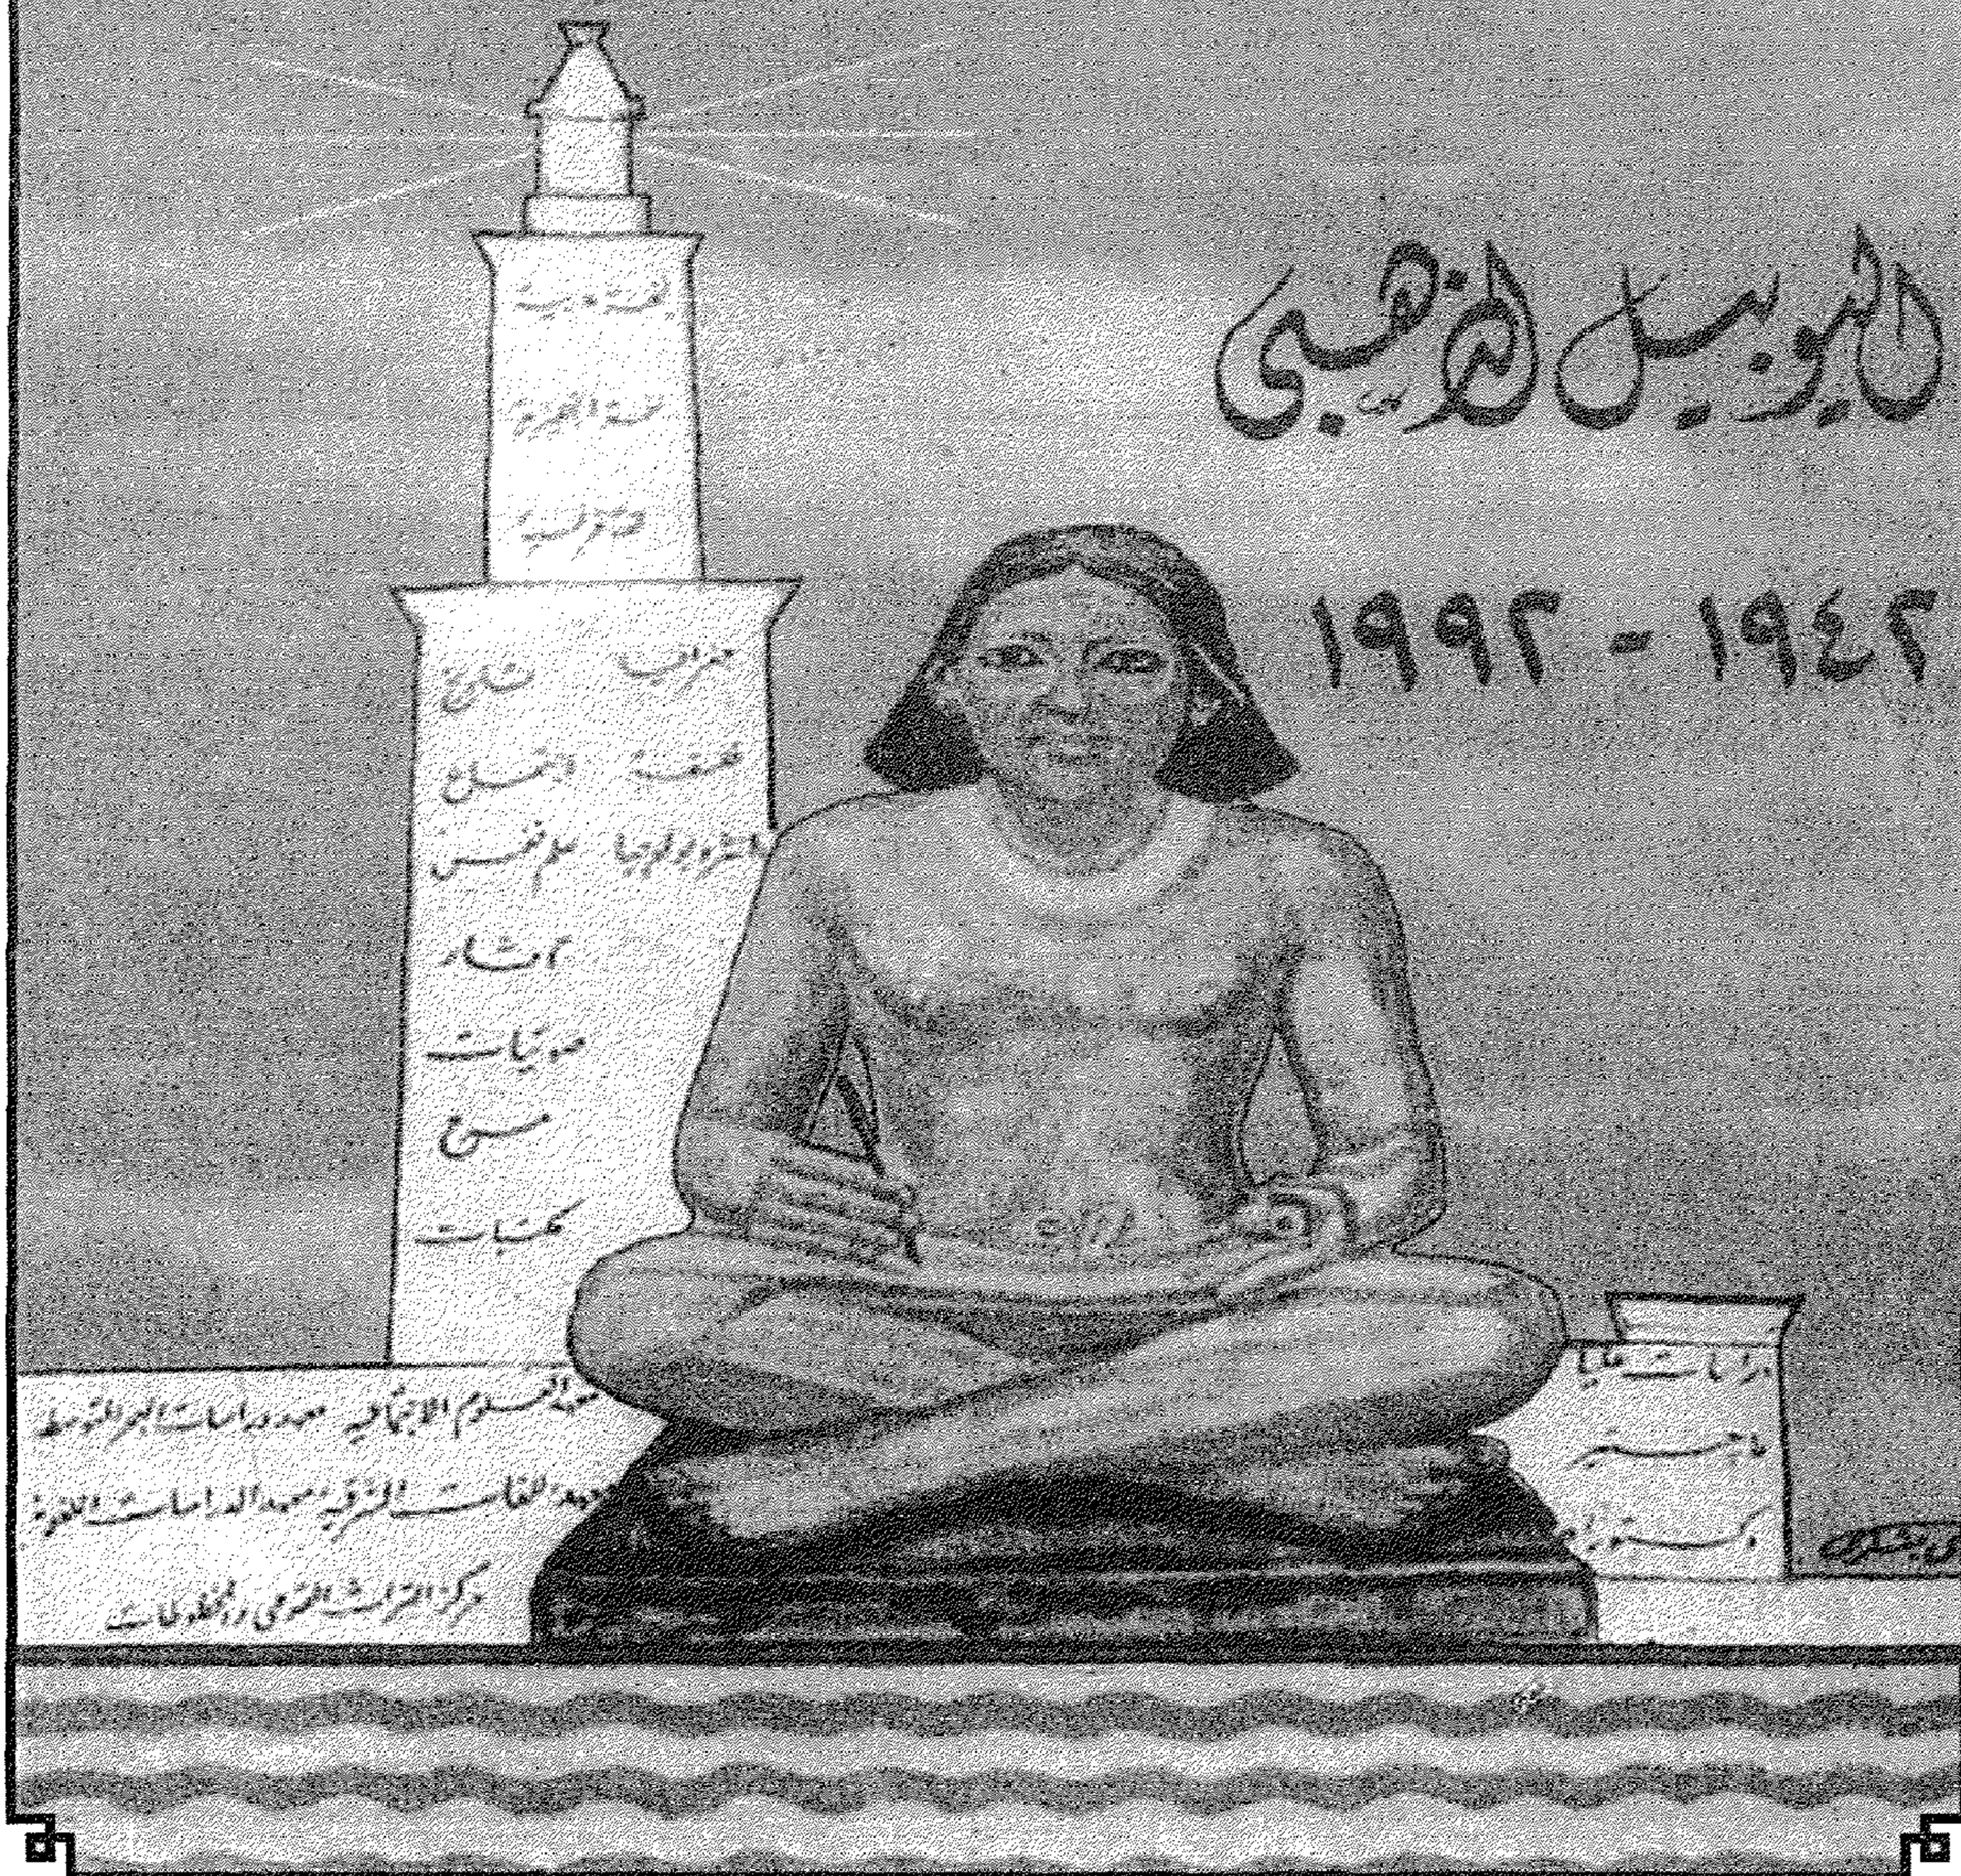 اليوبيل الذهبى
١٩٤٢ - ١٩٩٢
لغة عربية
لغة انجليزية
لغة فرنسية
جغرافيا تاريخ
فلسفة اجتماع
انثروبولوجيا علم نفس
آثار
صوتيات
مسرح
مكتبات
معهد العلوم الاجتماعيه معهد دراسات البحر المتوسط
معهد اللغات الشرقيه معهد الدراسات اللغوية
مركز التراث القومى والمخطوطات
دراسات عليا
ماجستير
دكتوراه